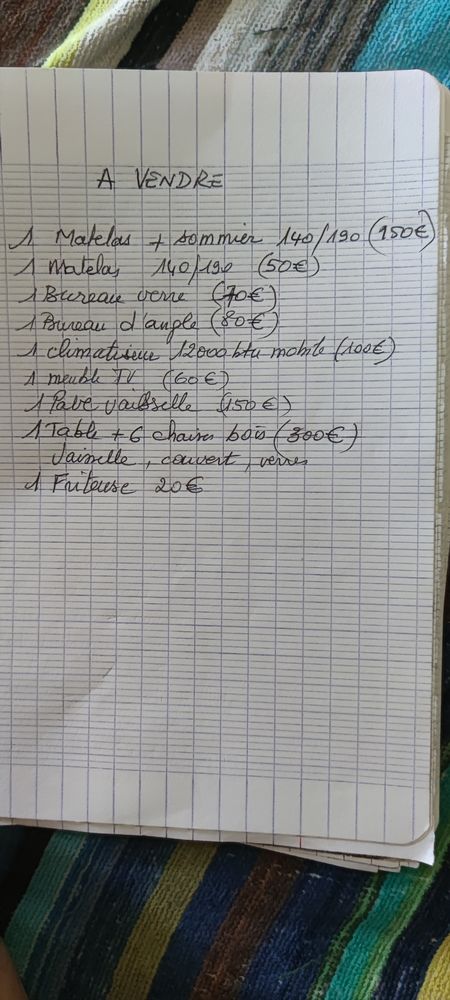 A VENDRE
1 Matelas + sommier 140/190 (150€)
1 Matelas 140/190 (50€)
1 Bureau verre (70€)
1 Bureau d'angle (80€)
1 climatiseur 12000 btu mobile (100€)
1 meuble TV (60€)
1 Lave vaisselle (150€)
1 Table + 6 chaises bois (300€)
Vaisselle, couvert, verres
1 Friteuse 20€